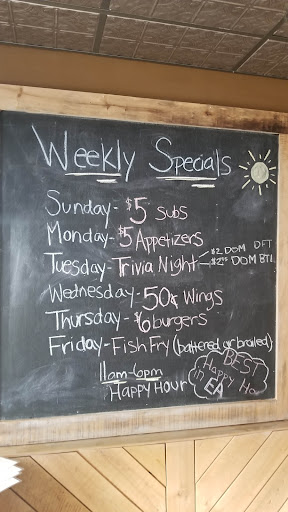 Weekly Specials
Sunday - $5 subs
Monday - $5 Appetizers
Tuesday - Trivia Night
$2 DOM DFT
DOM BTL
Wednesday - 50¢ Wings
Thursday - $6 burgers
Friday - Fish Fry (battered or broiled)
11am-6pm
Happy Hour
BEST
Happy Ho
in EA